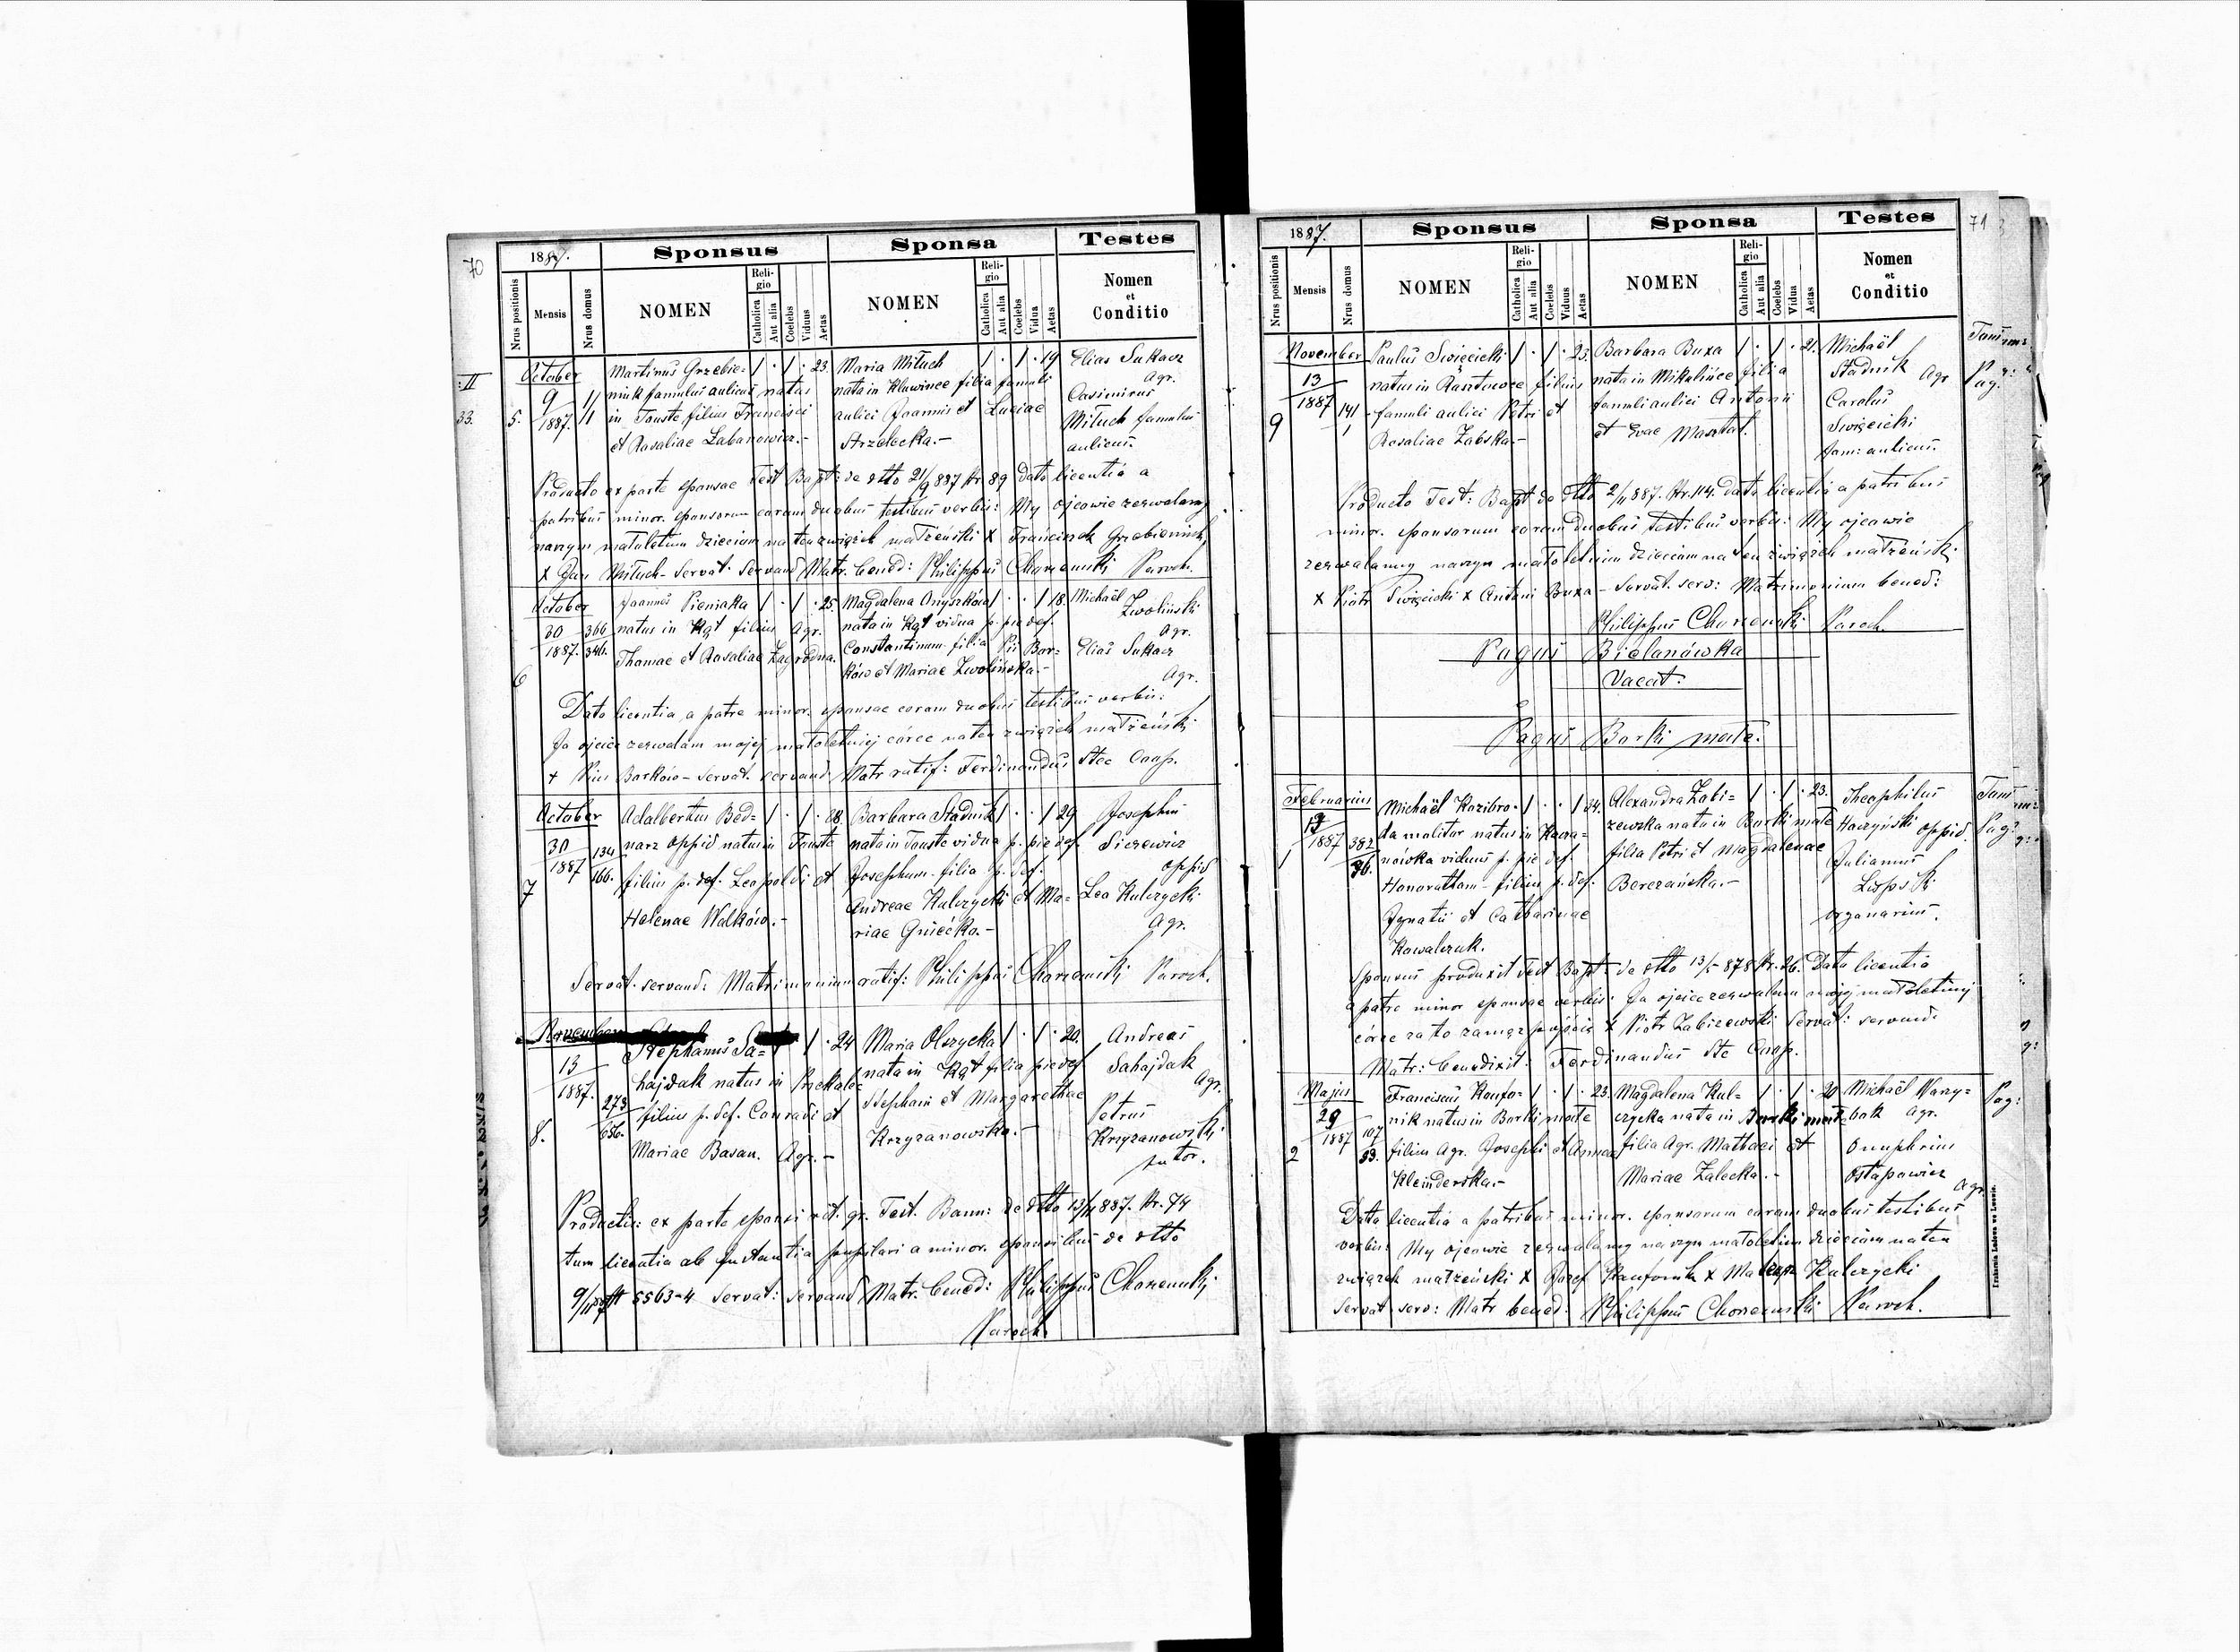 70
1887.
Sponsus
Sponsa
Testes
Nrus positionis
Mensis
Nrus domus
NOMEN
Religio
Catholica
Aut alia
Coelebs
Viduus
Aetas
NOMEN
Religio
Catholica
Aut alia
Coelebs
Vidua
Aetas
Nomen
et
Conditio
October Martinus Grzebie= 1 · 1 · 23. Maria Mituch 1 · 1 · 19 Elias Sukacz
9 nink famulus aulicus natus nata in Klawince filia famuli Agr.
5. 1887. in Touste filius Francisci aulici Joannis et Luciae Casimirus
et Rosaliae Labanowicz.- Strzelecka.- Mituch famulus
aulicus.
Producto ex parte sponsae Test Bapt: de dtto 21/9 887 Nr 89 Data licentia a
patribus minor. sponsorum coram duobus testibus verbis: My ojcowie zezwalamy
naszym małoletnim dzieciom na ten związek małżeński X Franciszek Grzebieniink
X Jan Mituch - Servat. servand Matr. bened: Philippus Paroch.
October Joannes Pieniaka 1 · 1 · 25 Magdalena Onyszków 1 · · 1 18. Michaël
30 366 natus in Kąt filius Agr. nata in Kąt vidua p. pie def. Zwoliński
1887. 346. Thomae et Rosaliae Zagrodna. Constantinum filia Pii Bor= Agr.
6 ków et Mariae Zwolińska.- Elias Sukacz
Agr.
Data licentia a patre minor. sponsae coram duobus testibus verbis:
Ja ojciec zezwalam mojej małoletniej córce na ten związek małżeński
+ Pius Borków - Servat. servand. Matr ratif: Ferdinandus Stec Coop.
October Adalbertus Bed= 1 · 1 · 28. Barbara Stadnik 1 · · 1 29 Josephus
30 134 narz oppid natus in Touste nata in Touste vidua p. pie def.
1887 166. filius p. def. Leopoldi et Josephum filia p. def. oppid
7 Helenae Walków.- Andreae Kulczycki et Ma= Leo Kulczycki
riae Gniećko.- Agr.
Servat. servand: Matrimonium ratif: Philippus Paroch.
November Stephanus Sa= 1 · 24 Maria Olszycka 1 · 1 · 20. Andreas
13 hajdak natus in nata in Kąt filia pie def Sahajdak
1887. 273 filius p. def. Conradi et Stephani et Margarethae Agr.
8. 656. Mariae Basan. Agr.- Krzyzanowska.- Petrus
Krzyzanowski
sutor.
Productis: ex parte sponsi rit. gr. Test. Bann: de dtto 13/11 887. Nr. 74
tum licentia ab Instantia pupilari a minor. sponsalibus de dtto
9/11 5563-4 Servat: servand Matr. bened: Philippus
Paroch.
71
1887.
Sponsus
Sponsa
Testes
Nrus positionis
Mensis
Nrus domus
NOMEN
Religio
Catholica
Aut alia
Coelebs
Viduus
Aetas
NOMEN
Religio
Catholica
Aut alia
Coelebs
Vidua
Aetas
Nomen
et
Conditio
November Paulus Swięcicki 1 · 1 · 23. Barbara Buxa 1 · 1 · 21. Michaël
13 natus in filius nata in Mikulince filia Stadnik Agr
1887 141 famuli aulici Petri et famuli aulici Antonii Carolus
9 1 Rosaliae Zabska.- et Evae Swięcicki
fam: aulicus.
Producto Test: Bapt de dtto 2/11 887. Nr. 114. data licentia a patribus
minor. sponsorum coram duobus testibus verbis: My ojcowie
zezwalamy naszym małoletnim dzieciom na ten związek małżeński
X Piotr Swięcicki X Antoni Buxa - Servat. serv: Matrimonium bened:
Philippus Paroch.
Pagus Bielanówka
Vacat.
Pagus Borki małe.
Februarius Michaël Kozibro= 1 · · 1 34. Alexandra Zabi= 1 · 1 · 23. Theophilus
da molitor natus in zewska nata in Borki małe Haczyński oppid.
1887 382 nówka viduus p. pie def. filia Petri et Magdalenae Julianus
1 36. Honorattam - filius p. def. Berezańska.-
Ignatii et Catharinae organarius.
Kowalczuk.
Sponsus produxit Test Bapt de dtto 13/5 878 Nr. 26. Data licentia
a patre minor sponsae verbis: Ja ojciec zezwalam mojej małoletniej
córce za to zamąz pójście X Piotr Zabizewski Servat: servand:
Matr: benedixit: Ferdinandus Ste Coop.
Majus Franciscus Konfo= 1 · 1 · 23. Magdalena Kul= 1 · 1 · 20 Michaël
29 nik natus in Borki małe czycka nata in Borki małe bak Agr.
1887 107 filius Agr. Josephi et Annae filia Agr. Mathaei et Onuphrius
2 53. Kleinderska.- Mariae Zalecka.- Ostapowicz
Agr
Data licentia a patribus minor. sponsorum coram duobus testibus
verbis: My ojcowie zezwalamy naszym małoletnim dzieciom na ten
związek małżeński X Józef Konfonik X Kulczycki
Servat serv: Matr bened: Philippus Paroch.